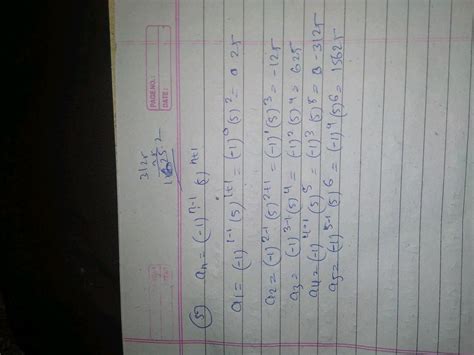 PAGE NO.:
DATE:
3125
25.2
⑤ aₙ = (-1)ⁿ⁻¹ (5)ⁿ⁺¹
a₁ = (-1)¹⁻¹ (5)¹⁺¹ = (-1)⁰ (5)² = 25
a₂ = (-1)²⁻¹ (5)²⁺¹ = (-1)¹ (5)³ = -125
a₃ = (-1)³⁻¹ (5)⁴ = (-1)² (5)⁴ = 625
a₄ = (-1)⁴⁻¹ (5)⁵ = (-1)³ (5)⁵ = -3125
a₅ = (-1)⁵⁻¹ (5)⁶ = (-1)⁴ (5)⁶ = 15625